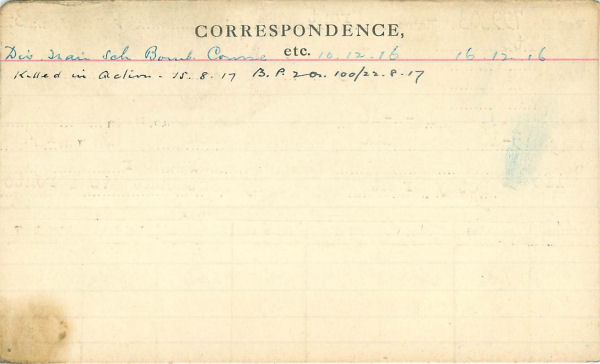 CORRESPONDENCE,
etc.
Div. Train Sch Bomb. Course 10.12.16 16.12.16
Killed in Action - 15.8.17 B.P.2 100/22.8.17